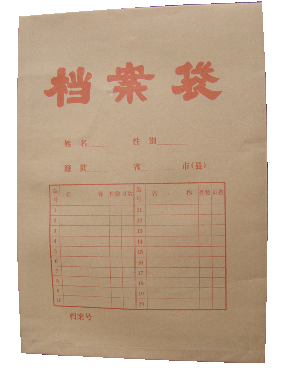 档案袋
姓名 性别
籍贯 省 市(县)
编号 名 称 份数 页数 编号 名 称 份数 页数
1 11
2 12
3 13
4 14
5 15
6 16
7 17
8 18
9 19
10 20
档案号